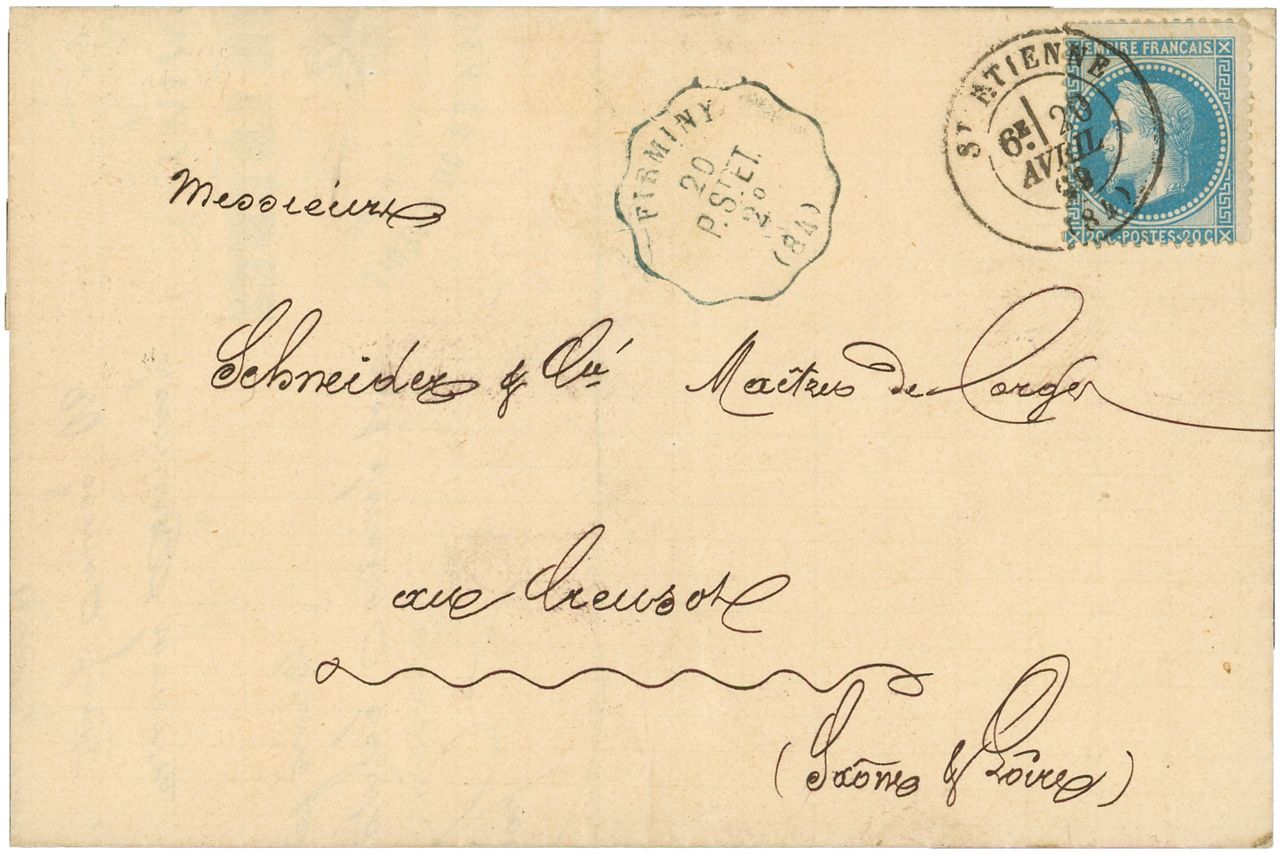 EMPIRE FRANCAIS
20 C. POSTES. 20 C
ST ETIENNE
6E 20
AVRIL
(84)
FIRMINY
20
P. ST ET.
2o
(84)
Messieurs
Schneider & Cie Maîtres de Forges
au Creusot
(Saône & Loire)